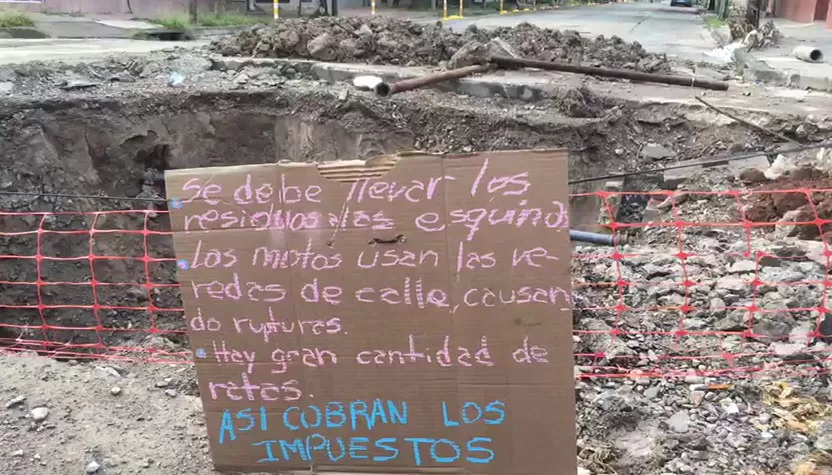 • Se debe llevar los
residuos a las esquina.
• Las motos usan las ve-
redas de calle, causan-
do rupturas.
• Hay gran cantidad de
ratas.
ASI COBRAN LOS
IMPUESTOS